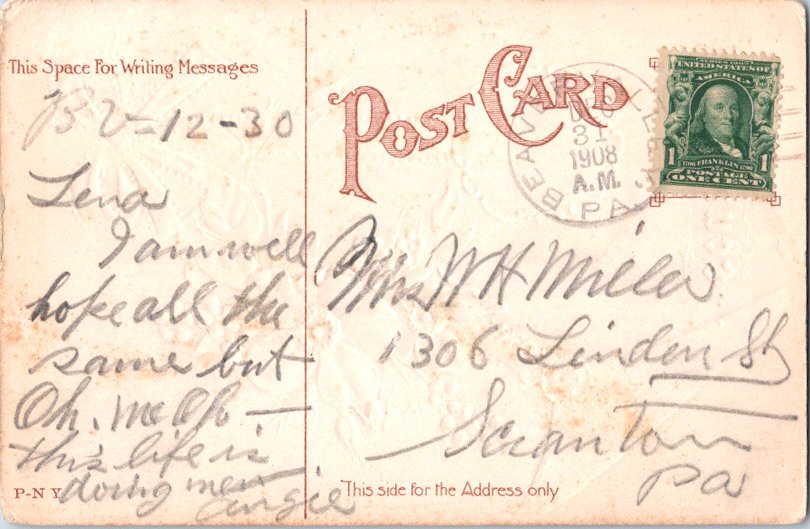 This Space For Writing Messages
BV-12-30
Lena
I am well
hope all the
same but
Oh,
this life is
doing me
Angie
P-NY
POST CARD
BEAVER
DEC
31
1908
A.M.
PA.
SERIES 1902
UNITED STATES OF
AMERICA
1 FRANKLIN 1
POSTAGE
ONE CENT
Mrs W H Miller
1306 Linden St
Scranton
Pa
This side for the Address only